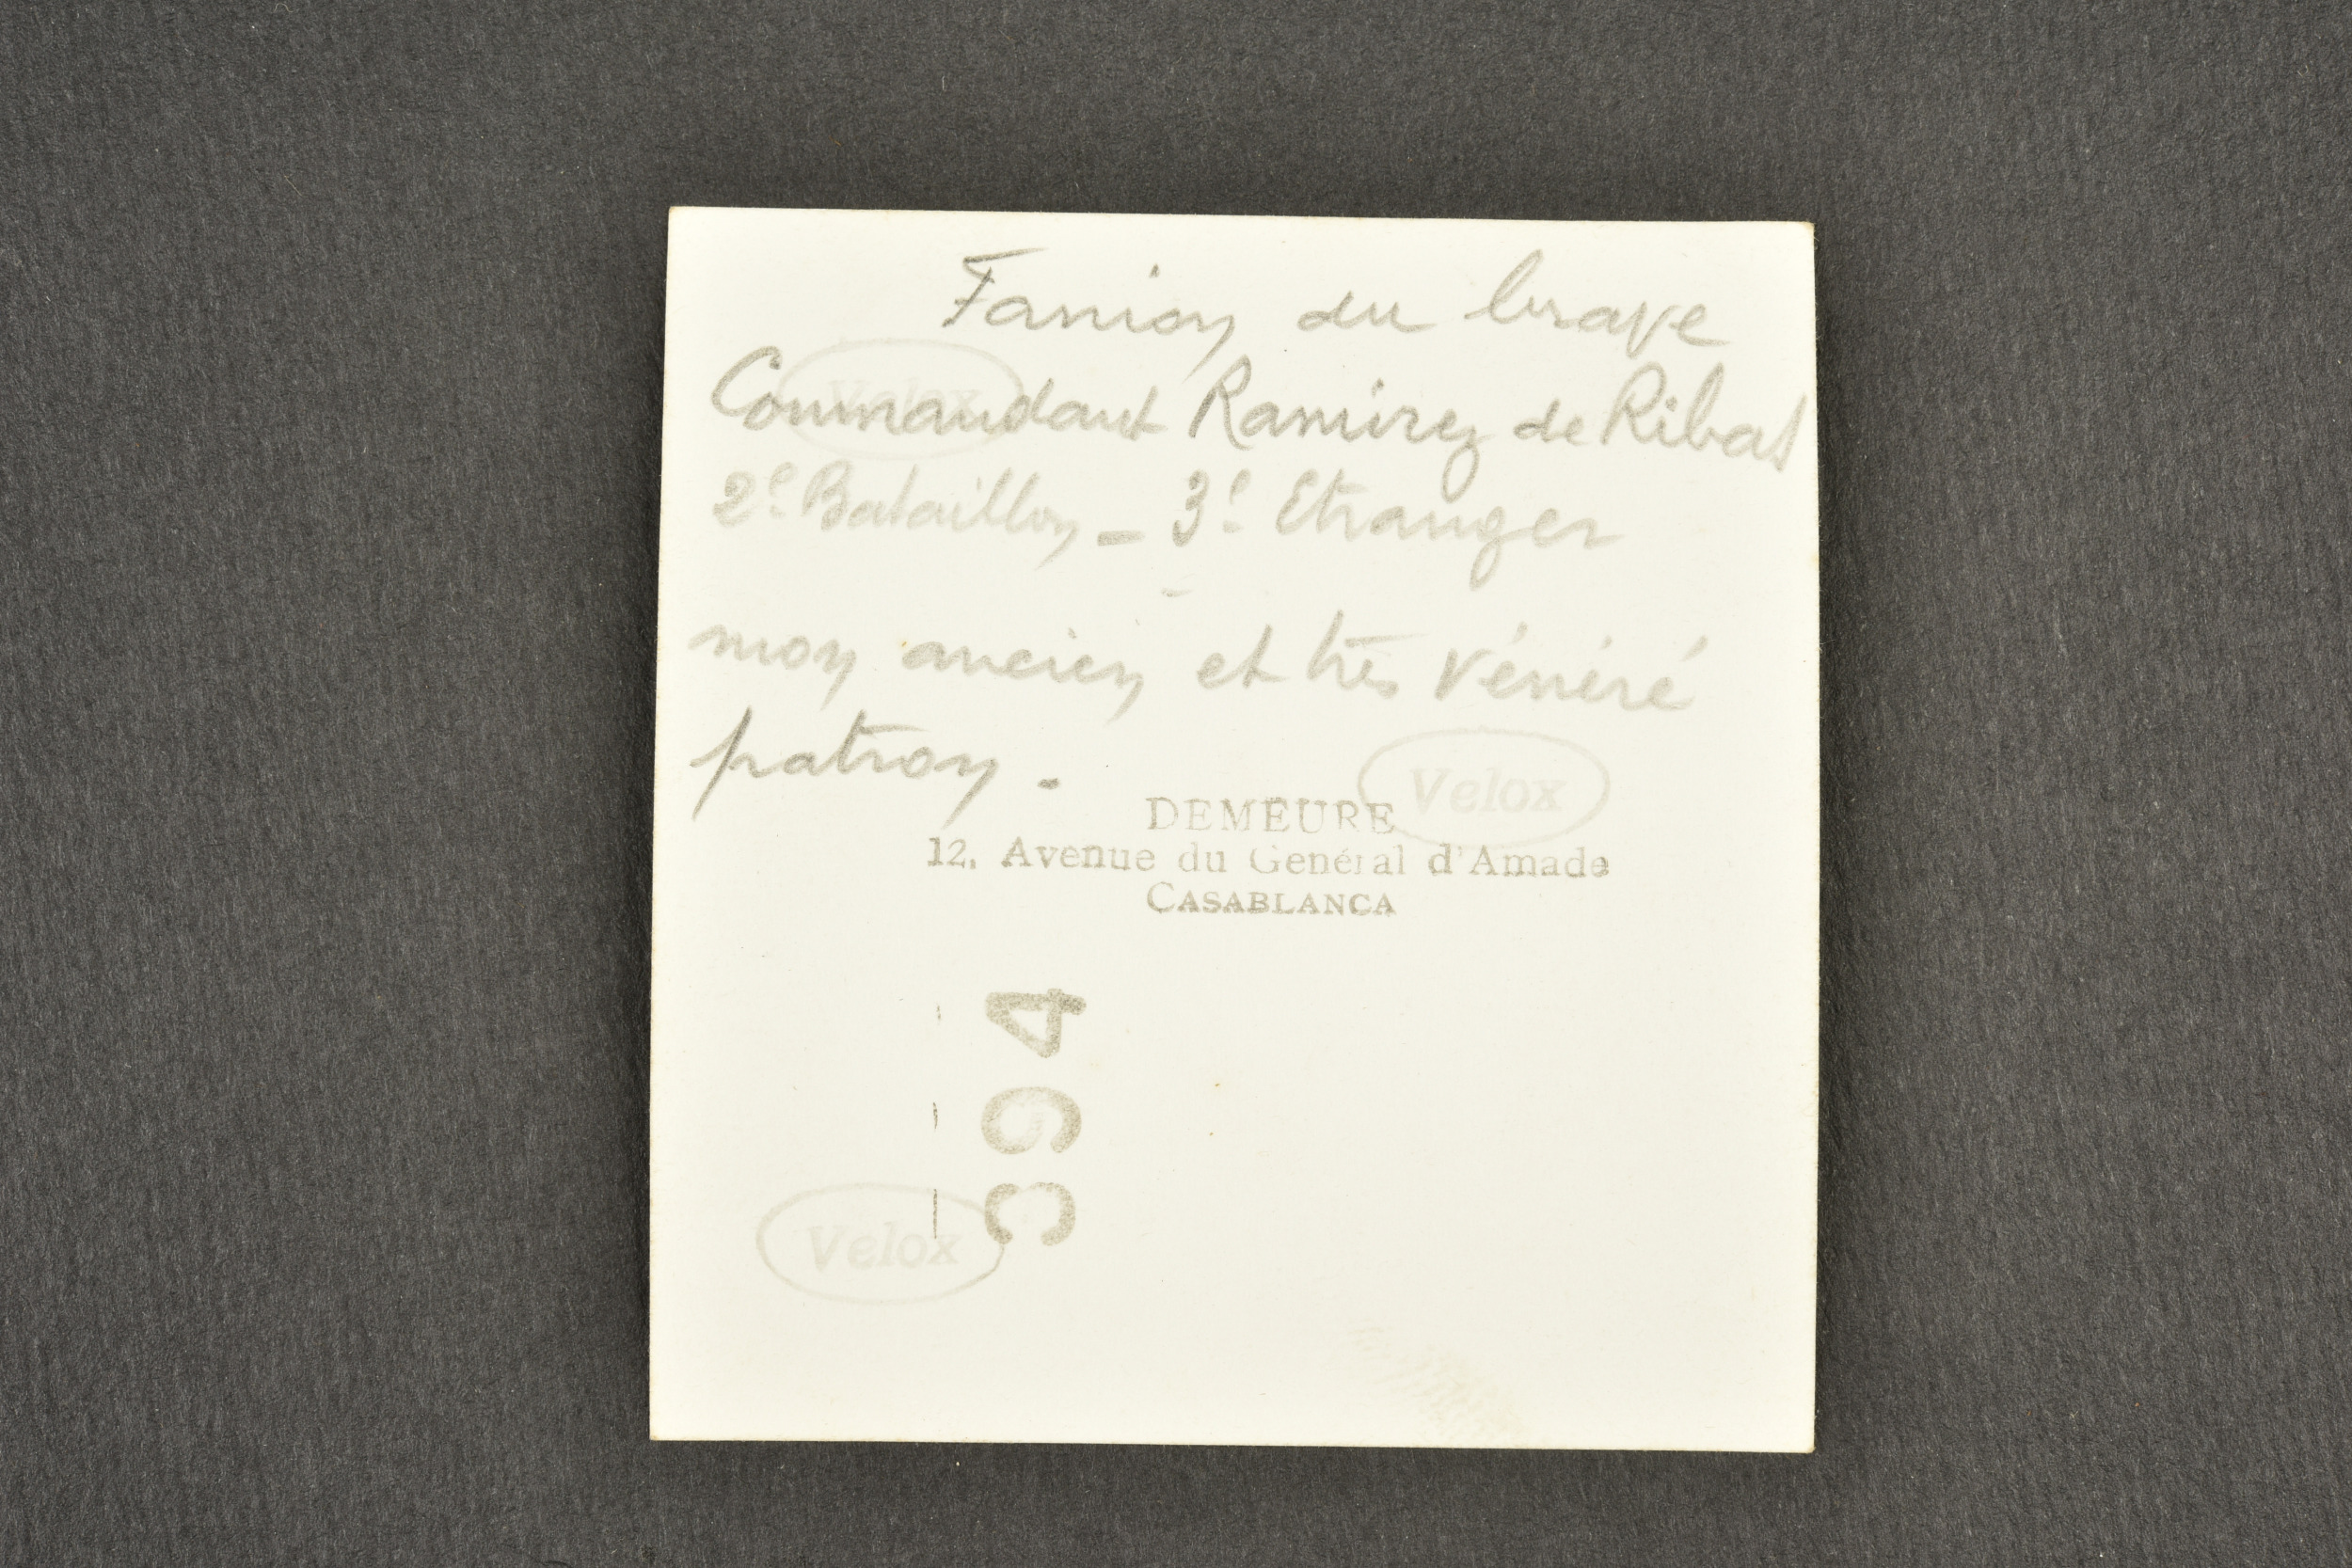 Fanion du brave
Velox
Commandant Ramirez de Ribas
2e Bataillon - 3e Etranger
mon ancien et très vénéré
patron.
Velox
DEMEURE
12, Avenue du Général d'Amade
CASABLANCA
394
Velox